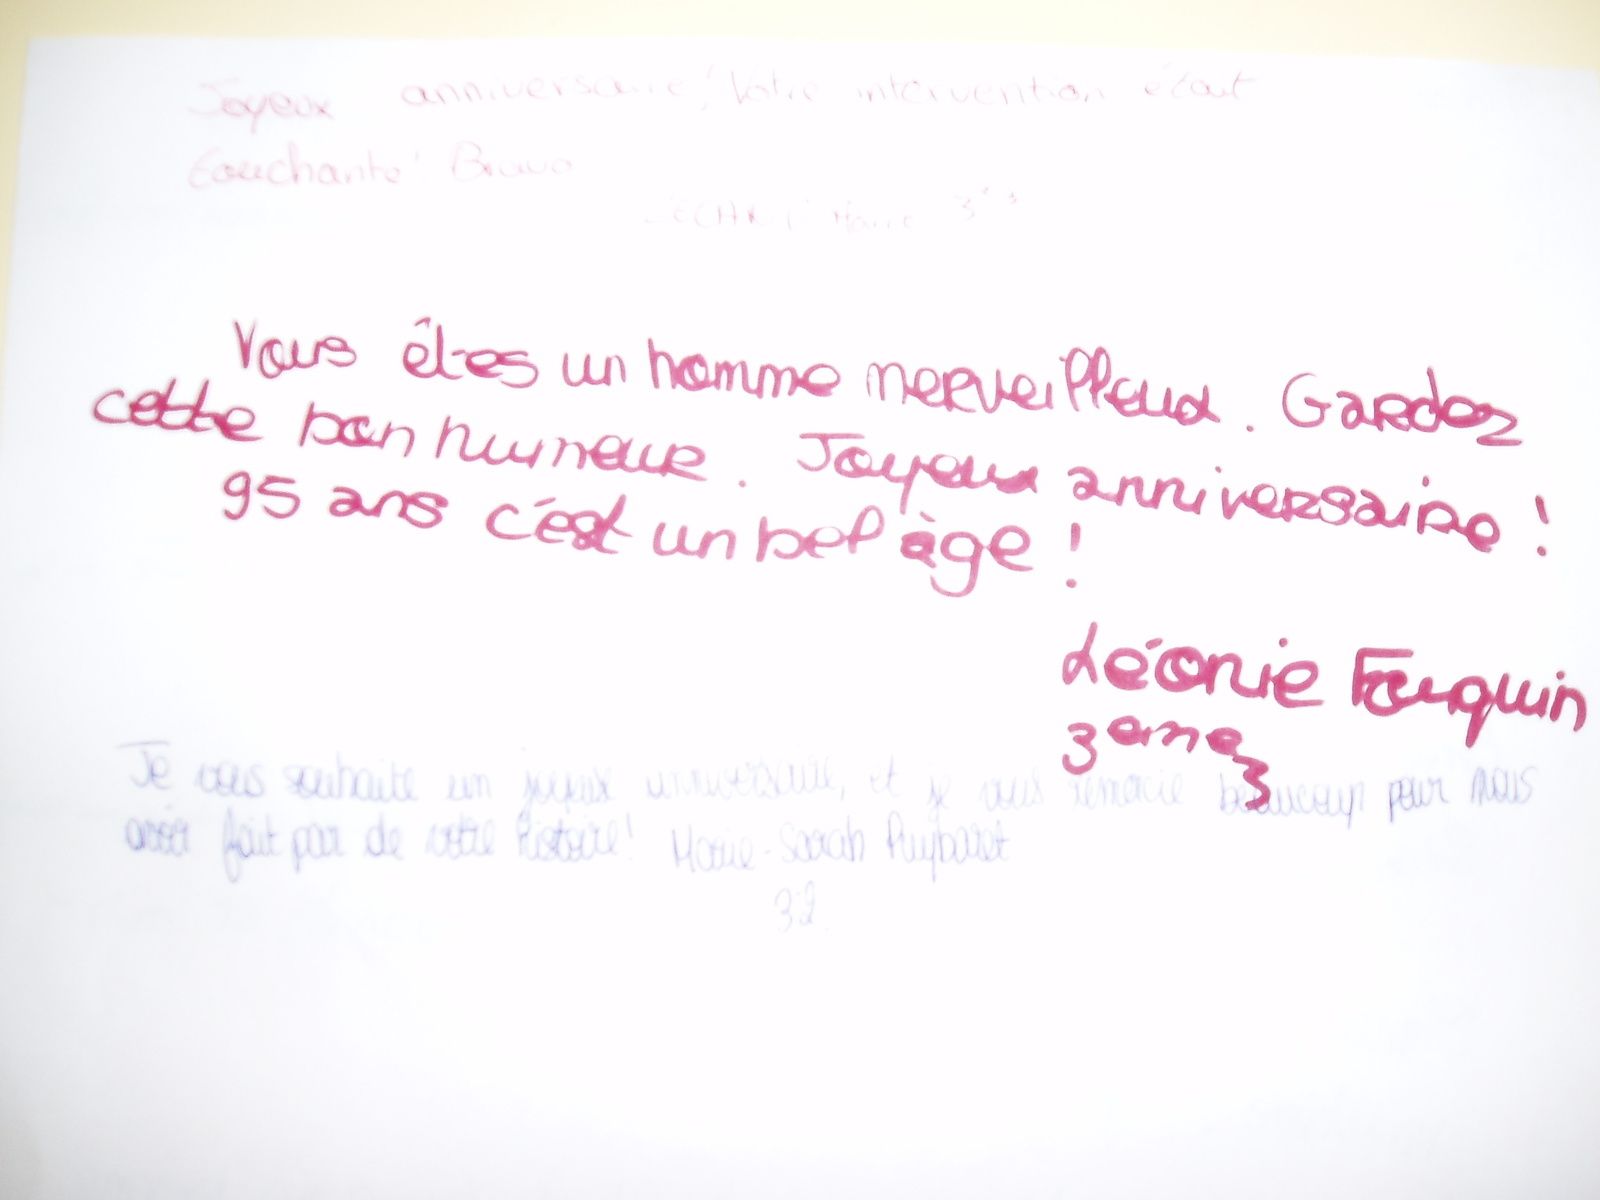 Joyeux anniversaire! Votre intervention était
touchante! Bravo
Marie 3
Vous êtes un homme merveilleux. Gardez
cette bon humeur. Joyeux anniversaire !
95 ans c'est un bel âge !
Léonie Fouquin
3eme 3
Je vous souhaite un joyeux anniversaire, et je vous remercie beaucoup pour nous
avoir fait par de votre histoire! Marie-Sarah
32